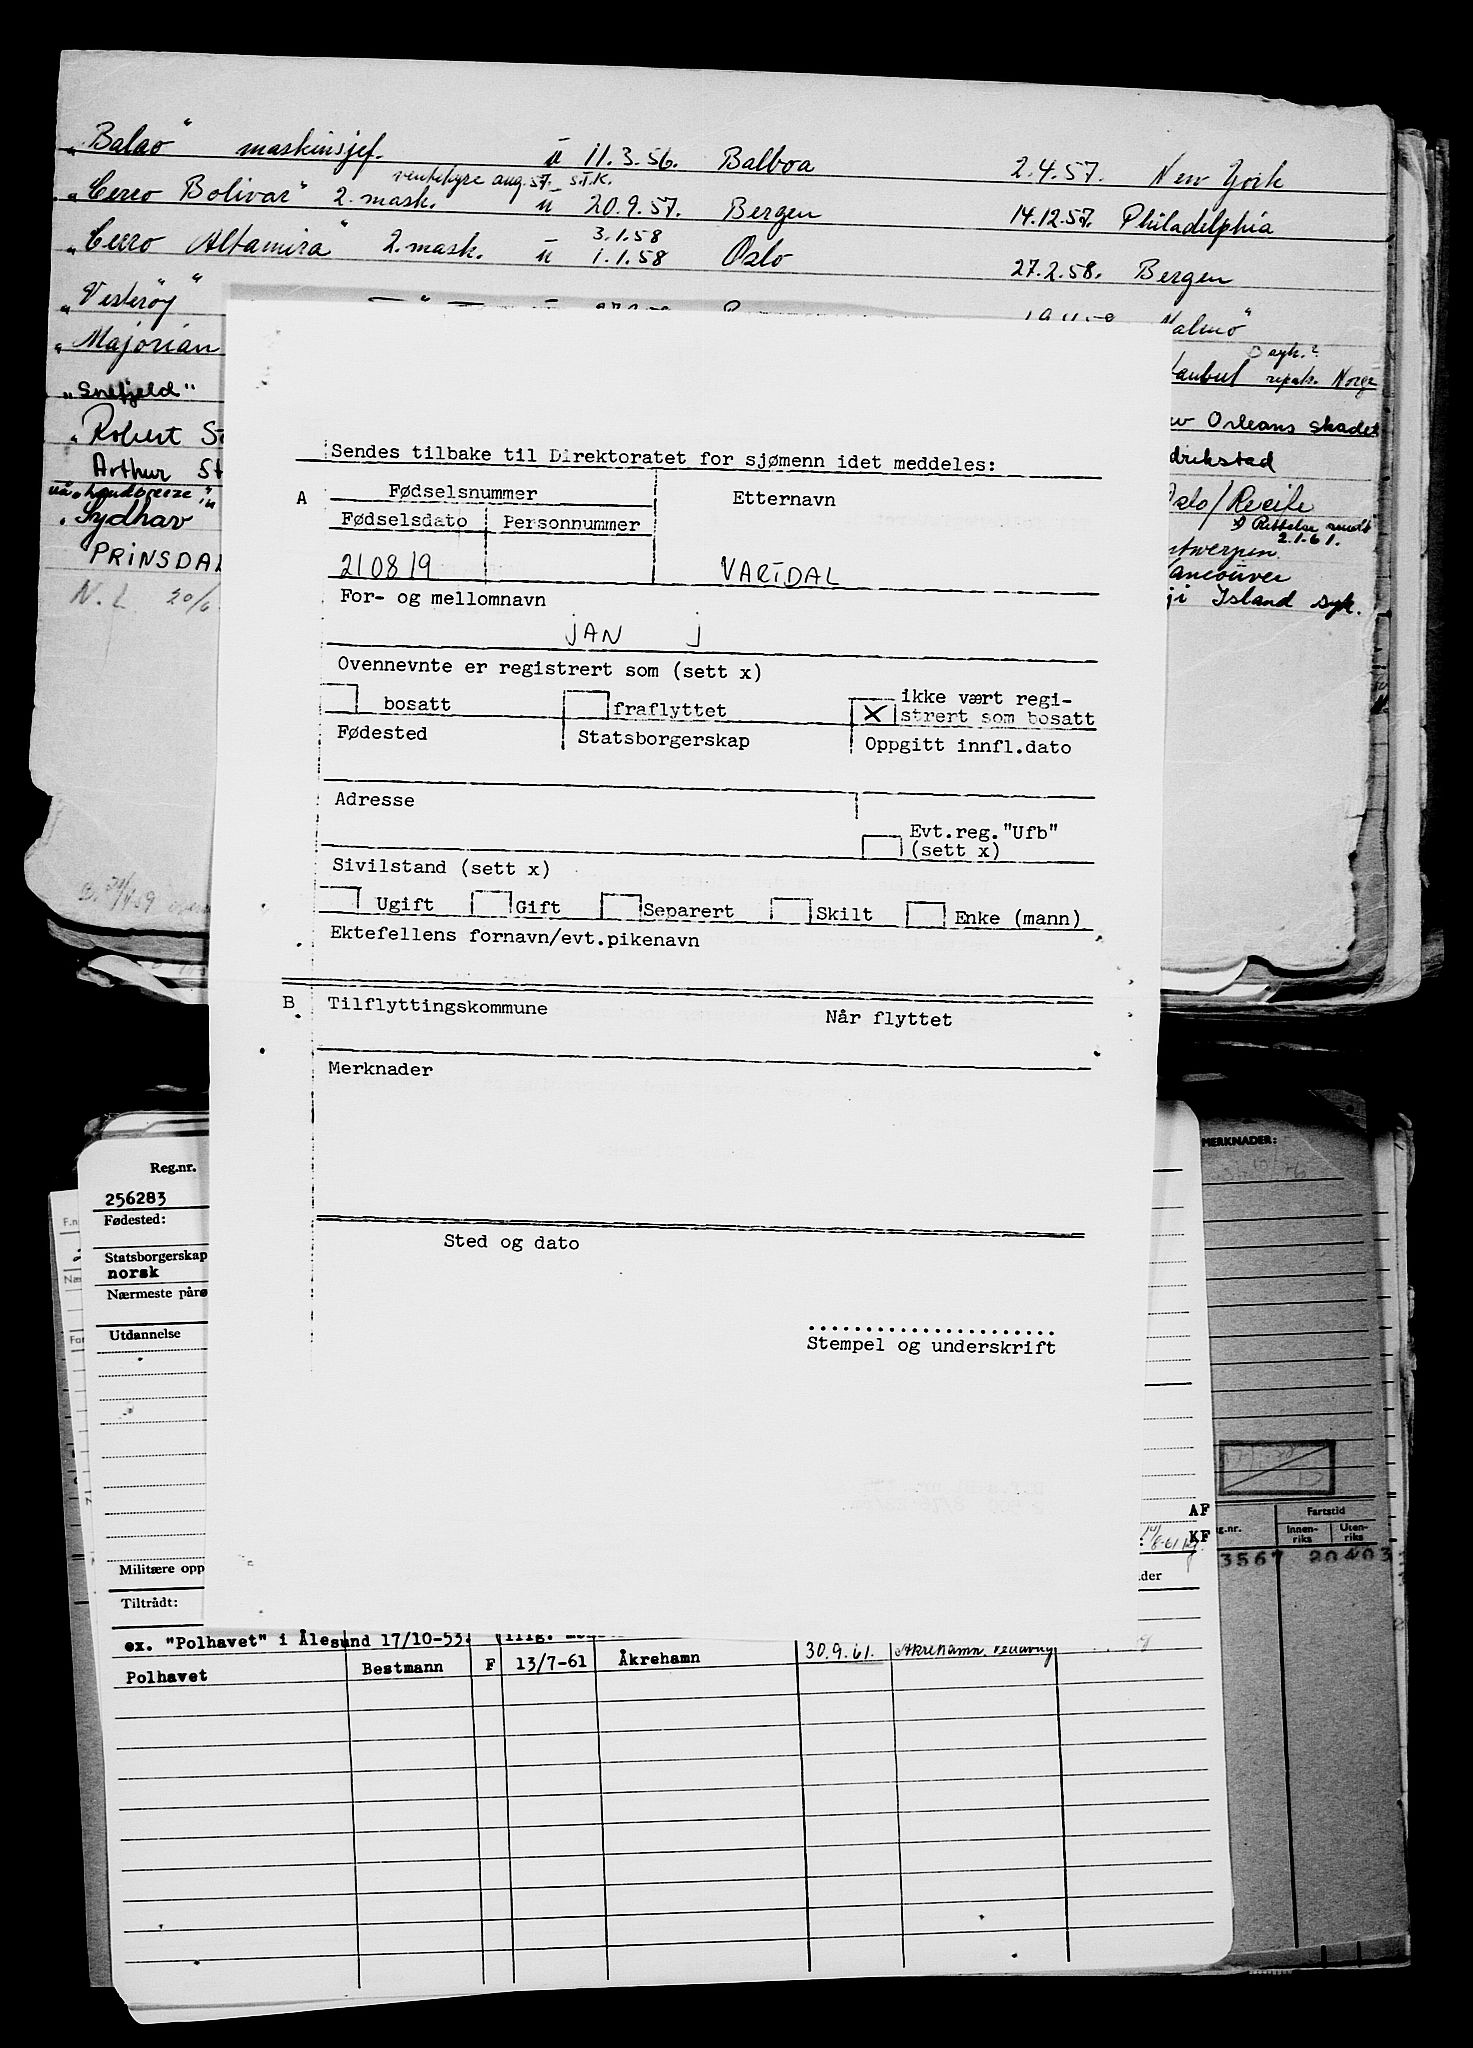 "Balao" maskinsjef. u 11.3.56. Balboa 2.4.57. New York
ventehyre aug. 57. S.T.K.
"Cerro Bolivar" 2. mask. u 20.9.57. Bergen 14.12.57. Philadelphia
3.1.58
"Cerro Altamira" 2. mask. u 1.1.58 Oslo 27.2.58. Bergen
"Vesterøy" Malmø
"Majorian syk.?
repatr. Norge
"Snefjeld"
Robert St Orleans skadet
Arthur St drikstad
"Landbreeze" Oslo/Recife
Sydhav Rettelse
2.1.61.
ntwerpen
PRINSDAL ancouver
N.L. 20/6 Island syk.
Sendes tilbake til Direktoratet for sjømenn idet meddeles:
A Fødselsnummer Etternavn
Fødselsdato Personnummer
210819 VARTDAL
For- og mellomnavn
JAN J
Ovennevnte er registrert som (sett x)
bosatt fraflyttet X ikke vært regi-
strert som bosatt
Fødested Statsborgerskap Oppgitt innfl.dato
Adresse
Evt.reg."Ufb"
(sett x)
Sivilstand (sett x)
Ugift Gift Separert Skilt Enke (mann)
Ektefellens fornavn/evt.pikenavn
B Tilflyttingskommune Når flyttet
Merknader
Sted og dato
Stempel og underskrift
MERKNADER:
Reg.nr.
256283
F.n
Fødested:
Statsborgerskap
norsk
Næ
Nærmeste pårø
Utdannelse
AF
KF
Fartstid
g.nr. Innen-
riks Uten-
riks
3567 20403
Militære opp der
Tiltrådt:
ex. "Polhavet" i Ålesund 17/10-53.
Polhavet Bestmann F 13/7-61 Åkrehamn 30.9.61. Åkrehamn